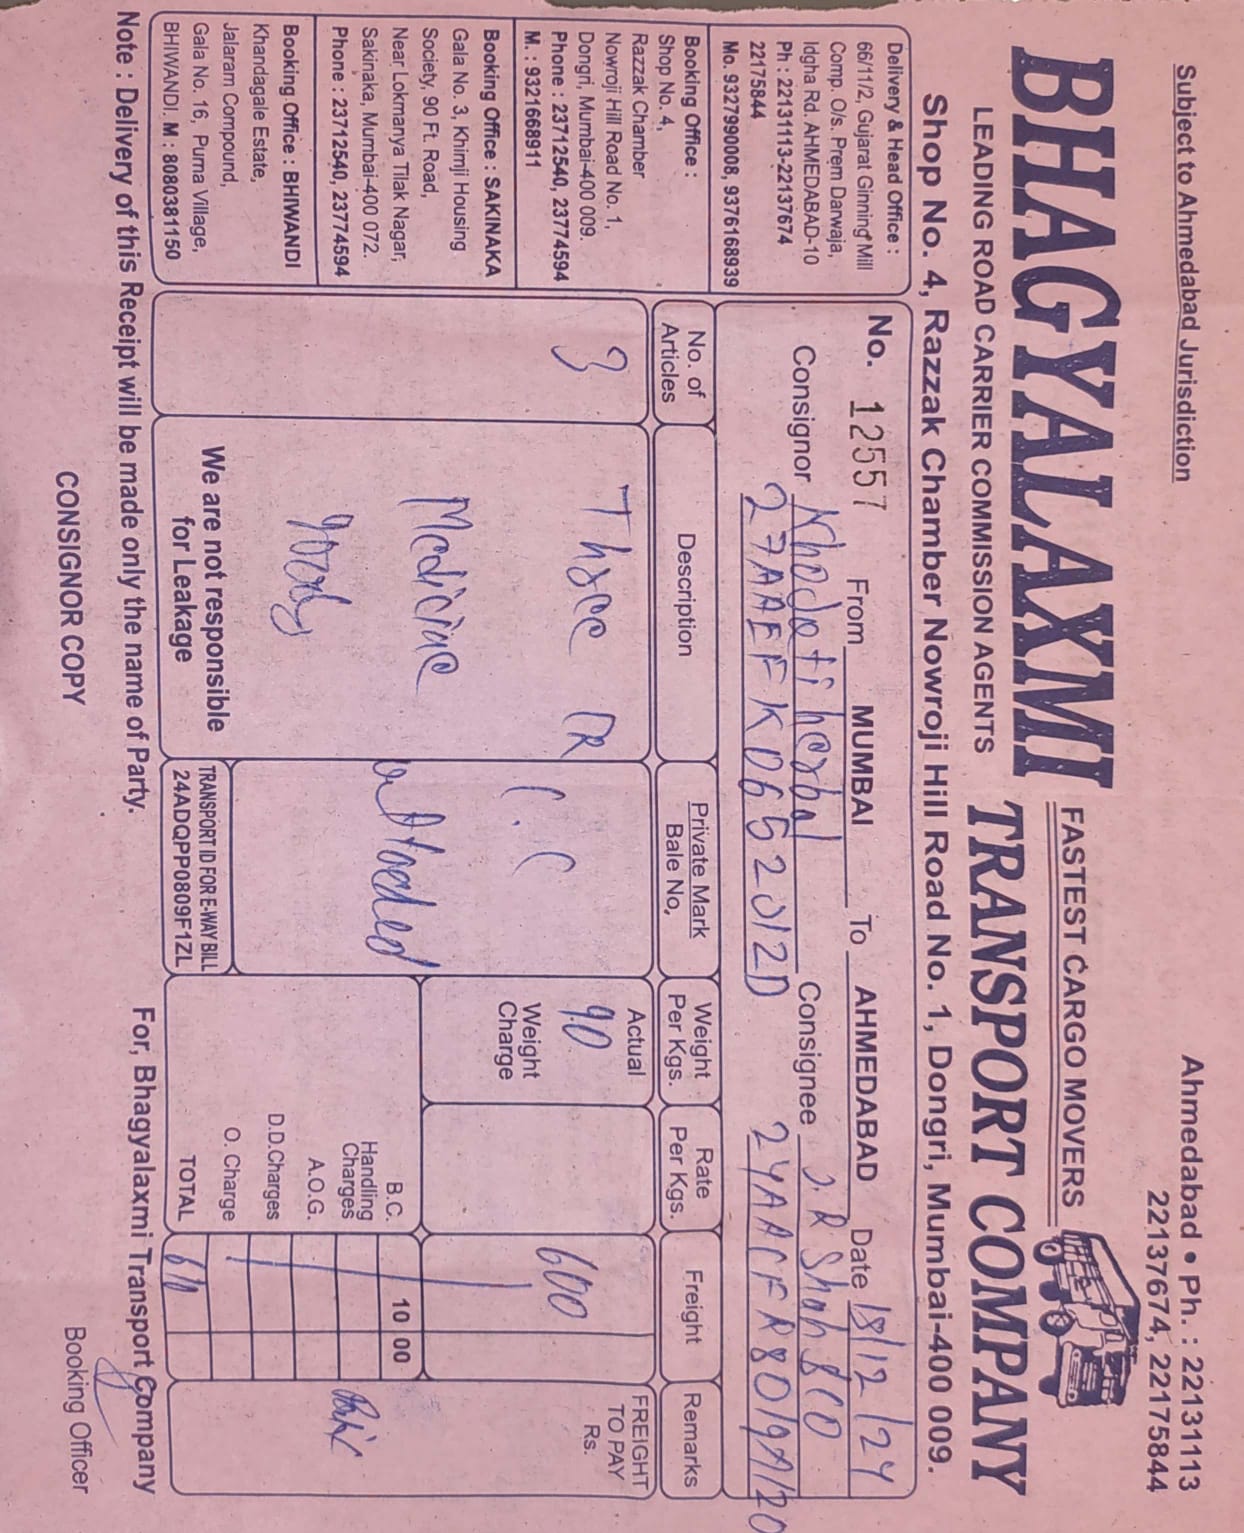 Subject to Ahmedabad Jurisdiction
Ahmedabad • Ph. : 22131113
22137674, 22175844
BHAGYALAXMI TRANSPORT COMPANY
FASTEST CARGO MOVERS
LEADING ROAD CARRIER COMMISSION AGENTS
Shop No. 4, Razzak Chamber Nowroji Hill Road No. 1, Dongri, Mumbai-400 009.
Delivery & Head Office :
66/11/2, Gujarat Ginning Mill
Comp. O/s. Prem Darwaja,
Idgha Rd. AHMEDABAD-10
Ph : 22131113-22137674
22175844
Mo. 9327990008, 9376168939
Booking Office :
Shop No. 4,
Razzak Chamber
Nowroji Hill Road No. 1,
Dongri, Mumbai-400 009.
Phone : 23712540, 23774594
M. : 9321668911
Booking Office : SAKINAKA
Gala No. 3, Khimji Housing
Society, 90 Ft. Road,
Near Lokmanya Tilak Nagar,
Sakinaka, Mumbai-400 072.
Phone : 23712540, 23774594
Booking Office : BHIWANDI
Khandagale Estate,
Jalaram Compound,
Gala No. 16, Purna Village,
BHIWANDI. M : 8080381150
No. 12557 From MUMBAI To AHMEDABAD Date 18/12/24
Consignor Khadati herbal Consignee J. R Shah & CO
27AAEFK0652
No. of Articles
Description
Private Mark
Bale No,
Weight
Per Kgs.
Rate
Per Kgs.
Freight
Remarks
3
Three CR
Medicine
goods
C.C
attached
Actual
90
Weight
Charge
600
FREIGHT
TO PAY
Rs.
B.C. 10 00
Handling
Charges
A.O.G.
D.D.Charges
O. Charge
TOTAL 610
We are not responsible
for Leakage
TRANSPORT ID FOR E-WAY BILL
24ADQPP0809F1ZL
Note : Delivery of this Receipt will be made only the name of Party.
For, Bhagyalaxmi Transport Company
CONSIGNOR COPY
Booking Officer